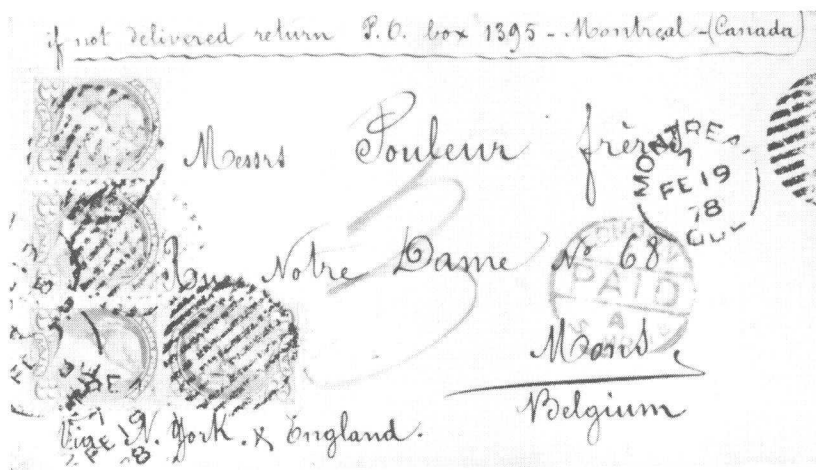 if not delivered return P.O. box 1395 - Montreal - (Canada)
Messrs Pouleur frères
MONTREAL
FE 19
78
QUE
Rue Notre Dame No 68
PAID
Mons
Belgium
Via N. York. & England.